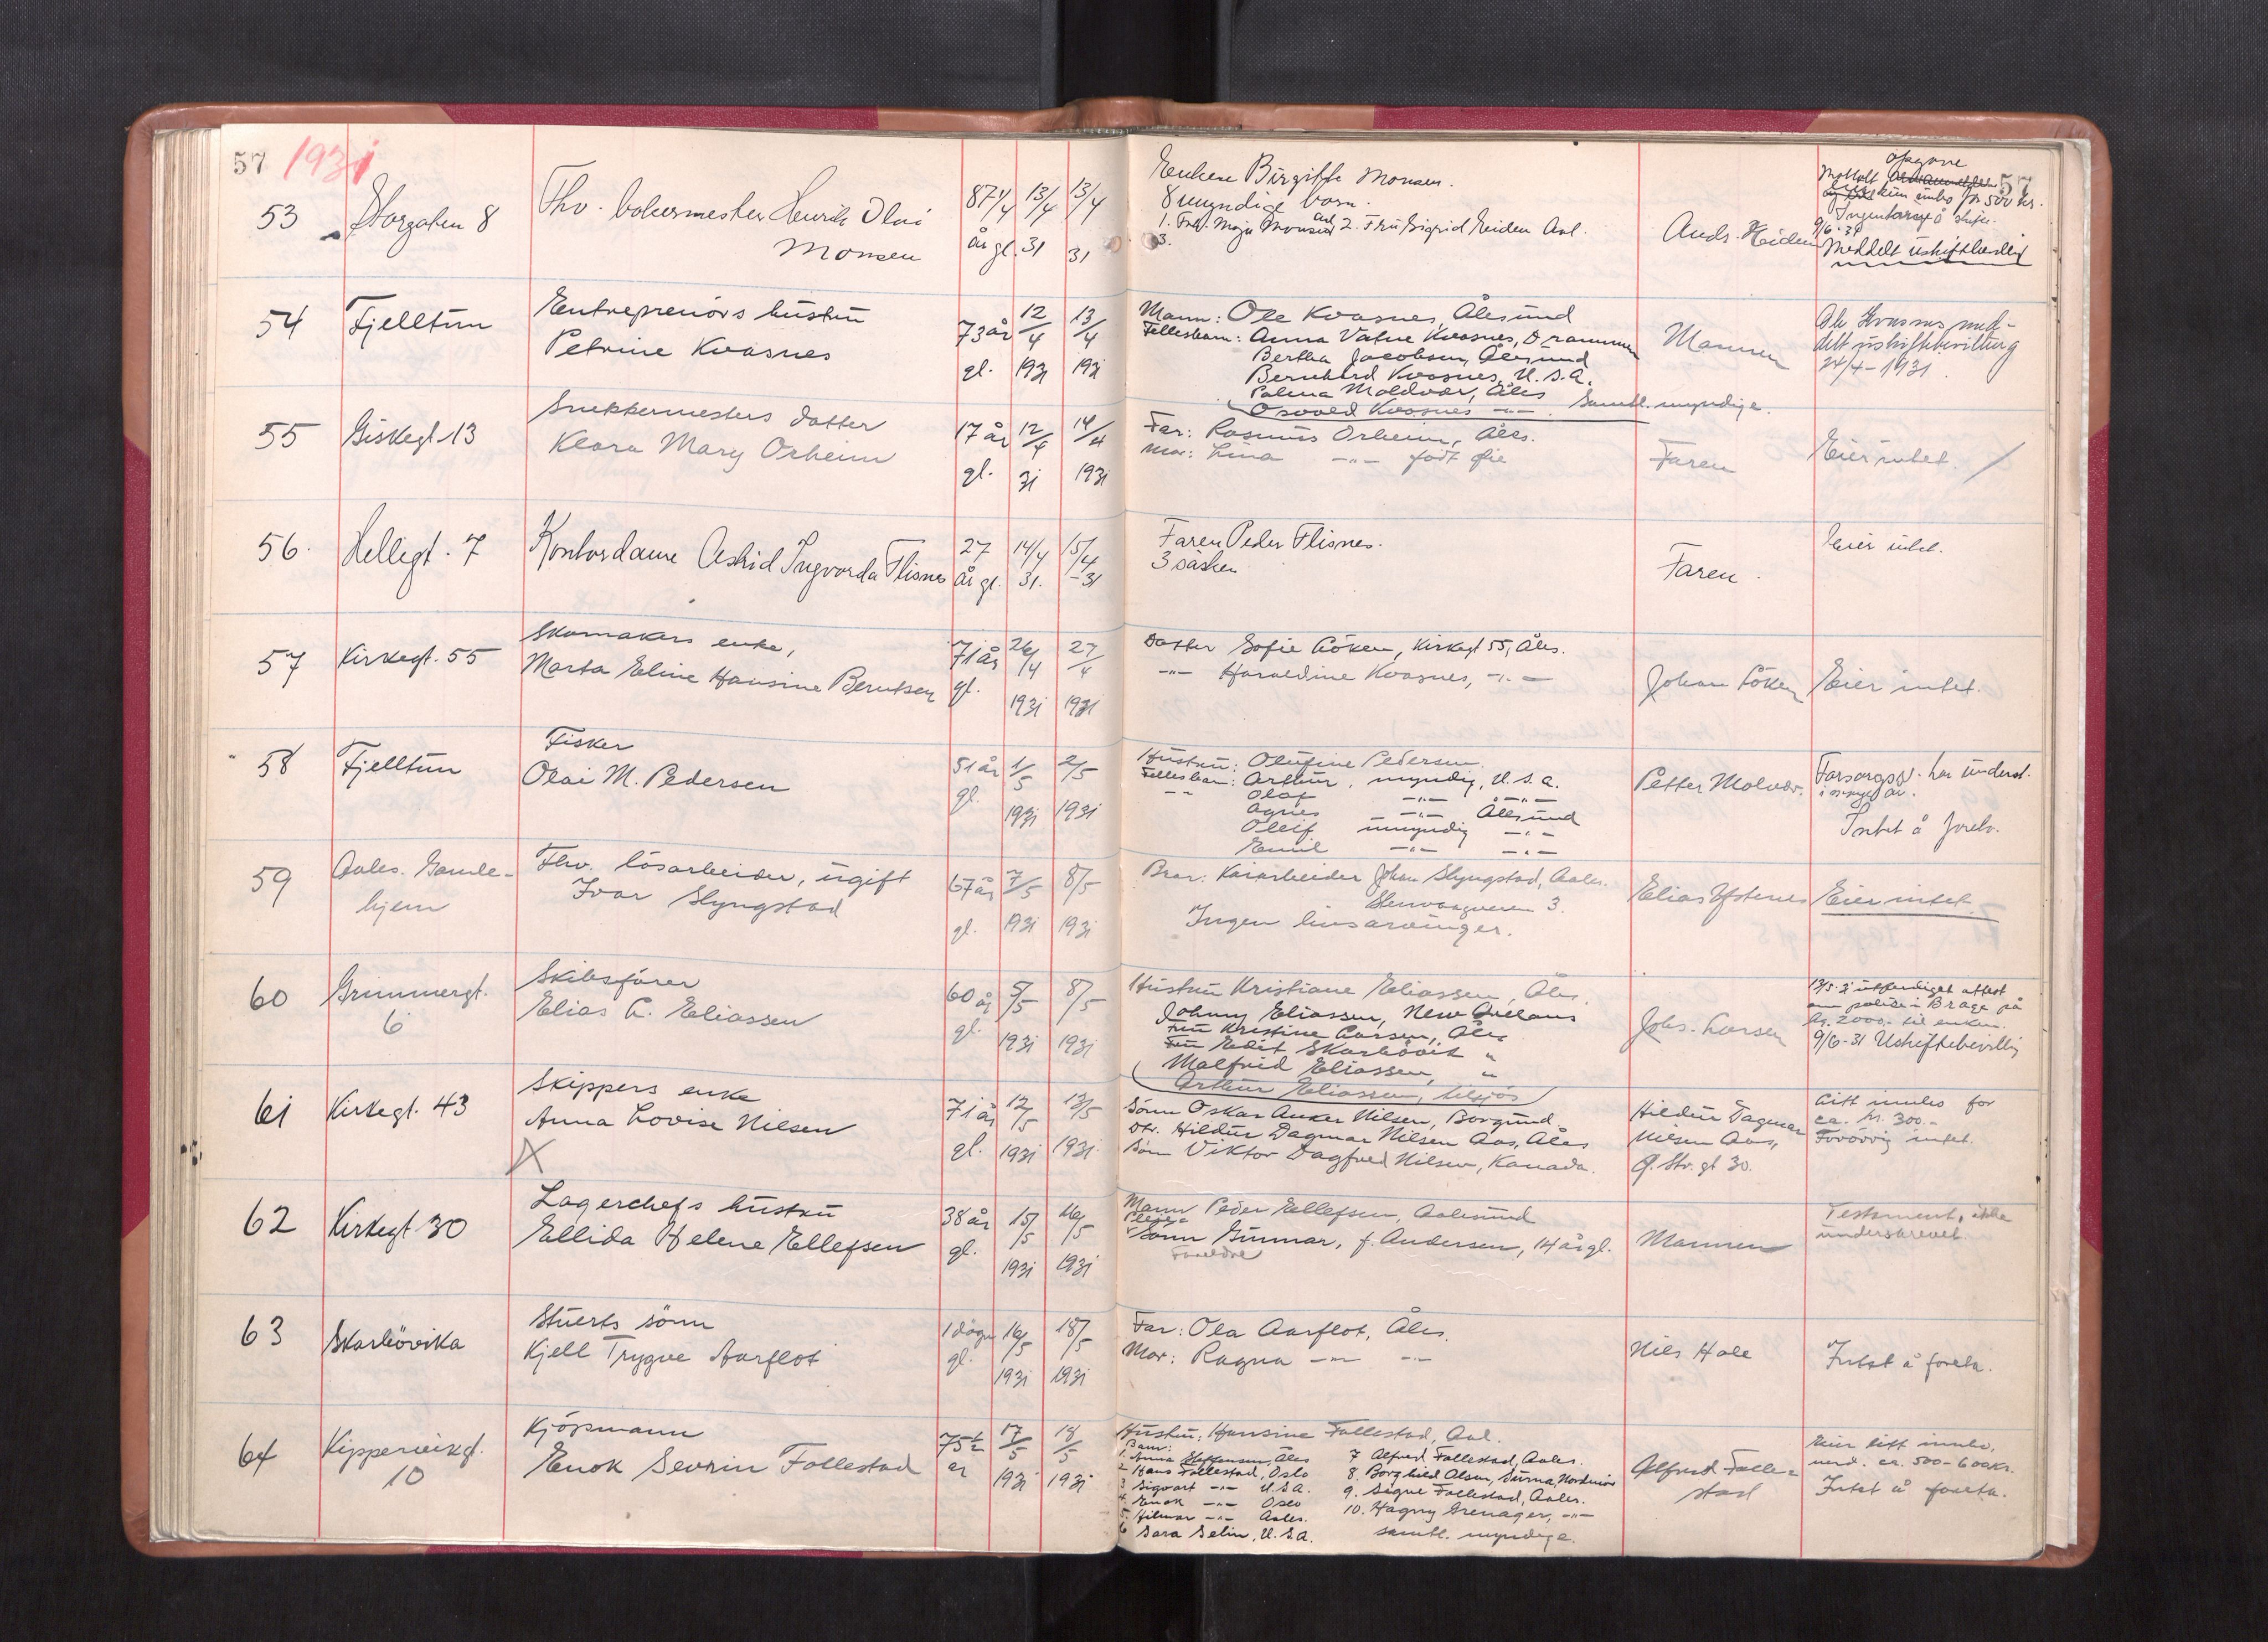 57 1931
57
53 Storgaten 8 Fhv. bakermester Henrik Olai Monsen 87 år gl. 13/4 31 13/4 31
Enken Birgitte Monsen.
8 myndige barn.
1. Frk. Maja Monsen 2. Fru Sigrid Eiden Aal.
3.
Andr. Heiden
Opgave
Mottatt
kun innbo for 500 kr.
Ingen å skifte.
9/6-31
Meddelt uskiftbevilling
54 Fjelltun Entreprenörs hustru
Petrine Kvasnes 73 år gl. 12/4 1931 13/4 1931
Mann: Ole Kvasnes, Ålesund
Fellesbarn: Anna Vatne Kvasnes, Drammen
Bertha Jacobsen, Ålesund
Bernhard Kvasnes, U.S.A.
Palma Moldvær, Åles
Osvald Kvasnes -"- . Samtl. myndige.
Mannen
Ole Kvasnes med-
delt uskiftebevilling
24/4-1931.
55 Giskegt. 13 Snekkermesters datter
Klara Mary Orheim 17 år gl. 12/4 31 14/4 1931
Far: Rasmus Orheim, Åles.
Mor: Lina -"- født Øie
Faren
Eier intet.
56. Hellegt. 7 Kontordame Astrid Ingvarda Flisnes 27 år gl. 14/4 31. 15/4 -31
Faren Peder Flisnes.
3 søsken
Faren.
Eier intet.
57 Kirkegt. 55 Skomakers enke,
Marta Eline Hansine Berntsen 71 år gl. 26/4 1931 27/4 1931
Datter Sofie Löken, Kirkegt 55, Åles.
-"- Haraldine Kvasnes, -"-
Johan Löken
Eier intet.
58 Fjelltun Fisker
Olai M. Pedersen 51 år gl. 1/5 1931 2/5 1931
Hustru: Olufine Pedersen.
Fellesbarn: Arthur, myndig, U.S.A.
-"- Olaf -"- -"-
Agnes -"- Ålesund
Olleif umyndig -"-
Emil -"- -"-
Petter Molvær.
Forsorgsv. har underst.
i mange år.
Intet å foreta.
59 Aales. Gamle-
hjem Fhv. lösarbeider, ugift
Ivar Slyngstad 67 år gl. 7/5 1931 8/5 1931
Bror: Kaiarbeider Johan Slyngstad, Aales.
3.
Ingen livsarvinger.
Elias Ystenes
Eier intet.
60 Grimmergt.
6 Skibsfører
Elias L. Eliassen 60 år gl. 5/5 1931 8/5 1931
Hustru Kristiane Eliassen, Åles.
Johnny Eliassen, New Orleans
Fru Kristine Larsen, Åles
Fru Edit Skarbövik "
Malfrid Eliassen, "
Arthur Eliassen, tilsjös
Johs. Larsen
13/5-31 utferdiget attest
om polise i Brage på
kr. 2000,- til enken.
9/6-31 Uskiftebevilling
61 Kirkegt. 43 Skippers enke
Anna Lovise Nilsen 71 år gl. 12/5 1931 13/5 1931
Sönn Oskar Anker Nilsen, Borgund
Dtr. Hildur Dagmar Nilsen Aas, Åles
Sönn Viktor Dagfred Nilsen, Kanada.
Hildur Dagmar
Nilsen Aas,
Ø. Str. gt 30.
Litt innbo for
ca. kr. 300.-
Forövrig intet.
62 Kirkegt 30 Lagerchefs hustru
Ellida Helene Ellefsen 38 år gl. 15/5 1931 16/5 1931
Mann Peder Ellefsen, Aalesund
Pleie-
Sönn Gunnar, f. Andersen, 14 år gl.
Foreldre
Mannen
Testament, ikke
underskrevet.
63 Skarbövika Stuerts sönn
Kjell Trygve Aarflot 1 dögn gl. 16/5 1931 18/5 1931
Far: Ola Aarflot, Åles.
Mor: Ragna -"- -"-
Nils Hole
Intet å foreta.
64 Kipperviksgt.
10 Kjöpmann
Enok Sevrin Follestad 75½ år 17/5 1931 18/5 1931
Hustru: Hansine Follestad, Aal.
Barn:
1. Anna Steffensen, Åles 7 Alfred Follestad, Aales.
2 Hans Follestad, Oslo 8. Borghild Olsen, Surna, Nordmöre
3 Sigvart -"- U.S.A. 9. Signe Follestad, Aales.
4. Enok -"- Oslo 10. Hagny Grenager, -"-
5. Hilmar -"- Aales.
6 Sara Selin, U.S.A. samtl. myndige.
Alfred Folle-
stad
Eier litt innbo,
verd. ca. 500-600 kr.
Intet å foreta.